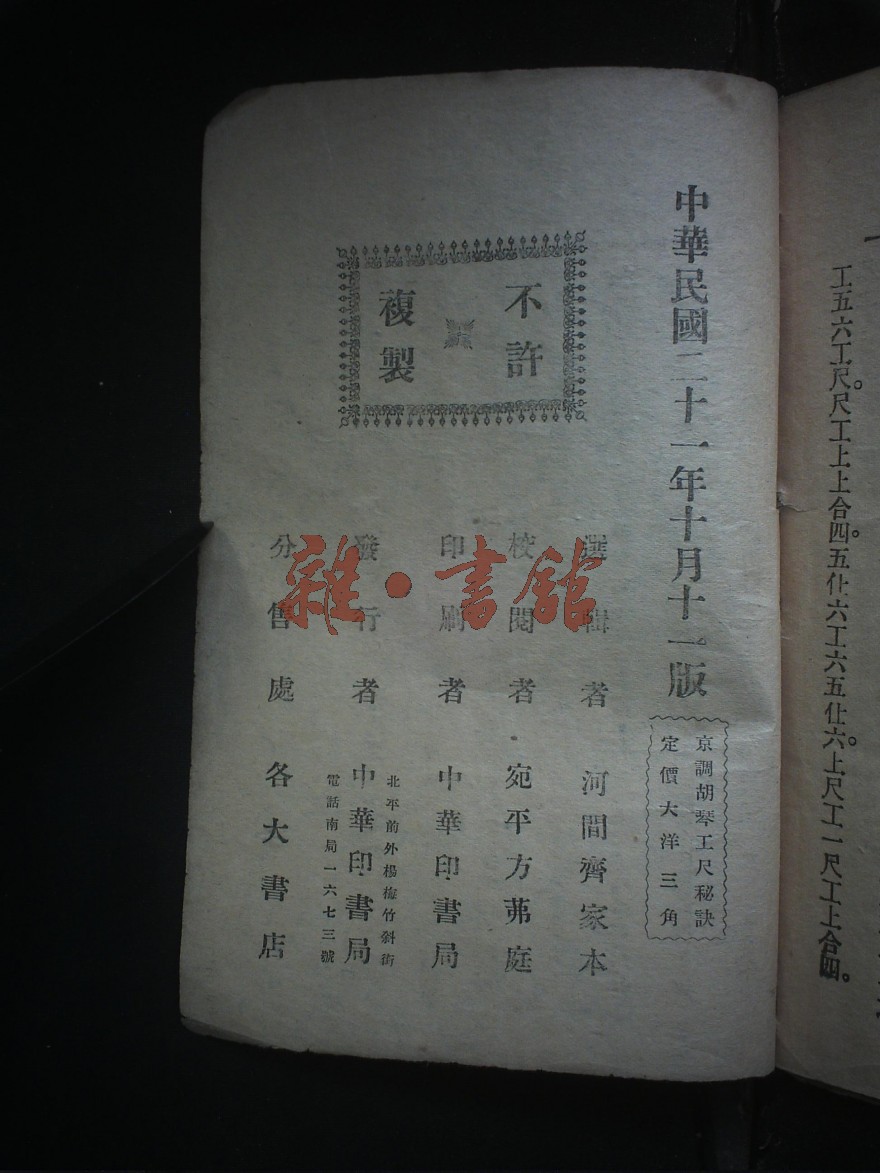 工五六工尺。尺工上上合四。五仩六工六五仩六。上尺工一尺工上合四。
中華民國二十一年十月十一版
京調胡琴工尺秘訣
定價大洋三角
不許
複製
選輯者 河間齊家本
校閱者 宛平方茀庭
印刷者 中華印書局
北平前外楊梅竹斜街
發行者 中華印書局
電話南局一六七三號
分售處 各大書店
雜·書館